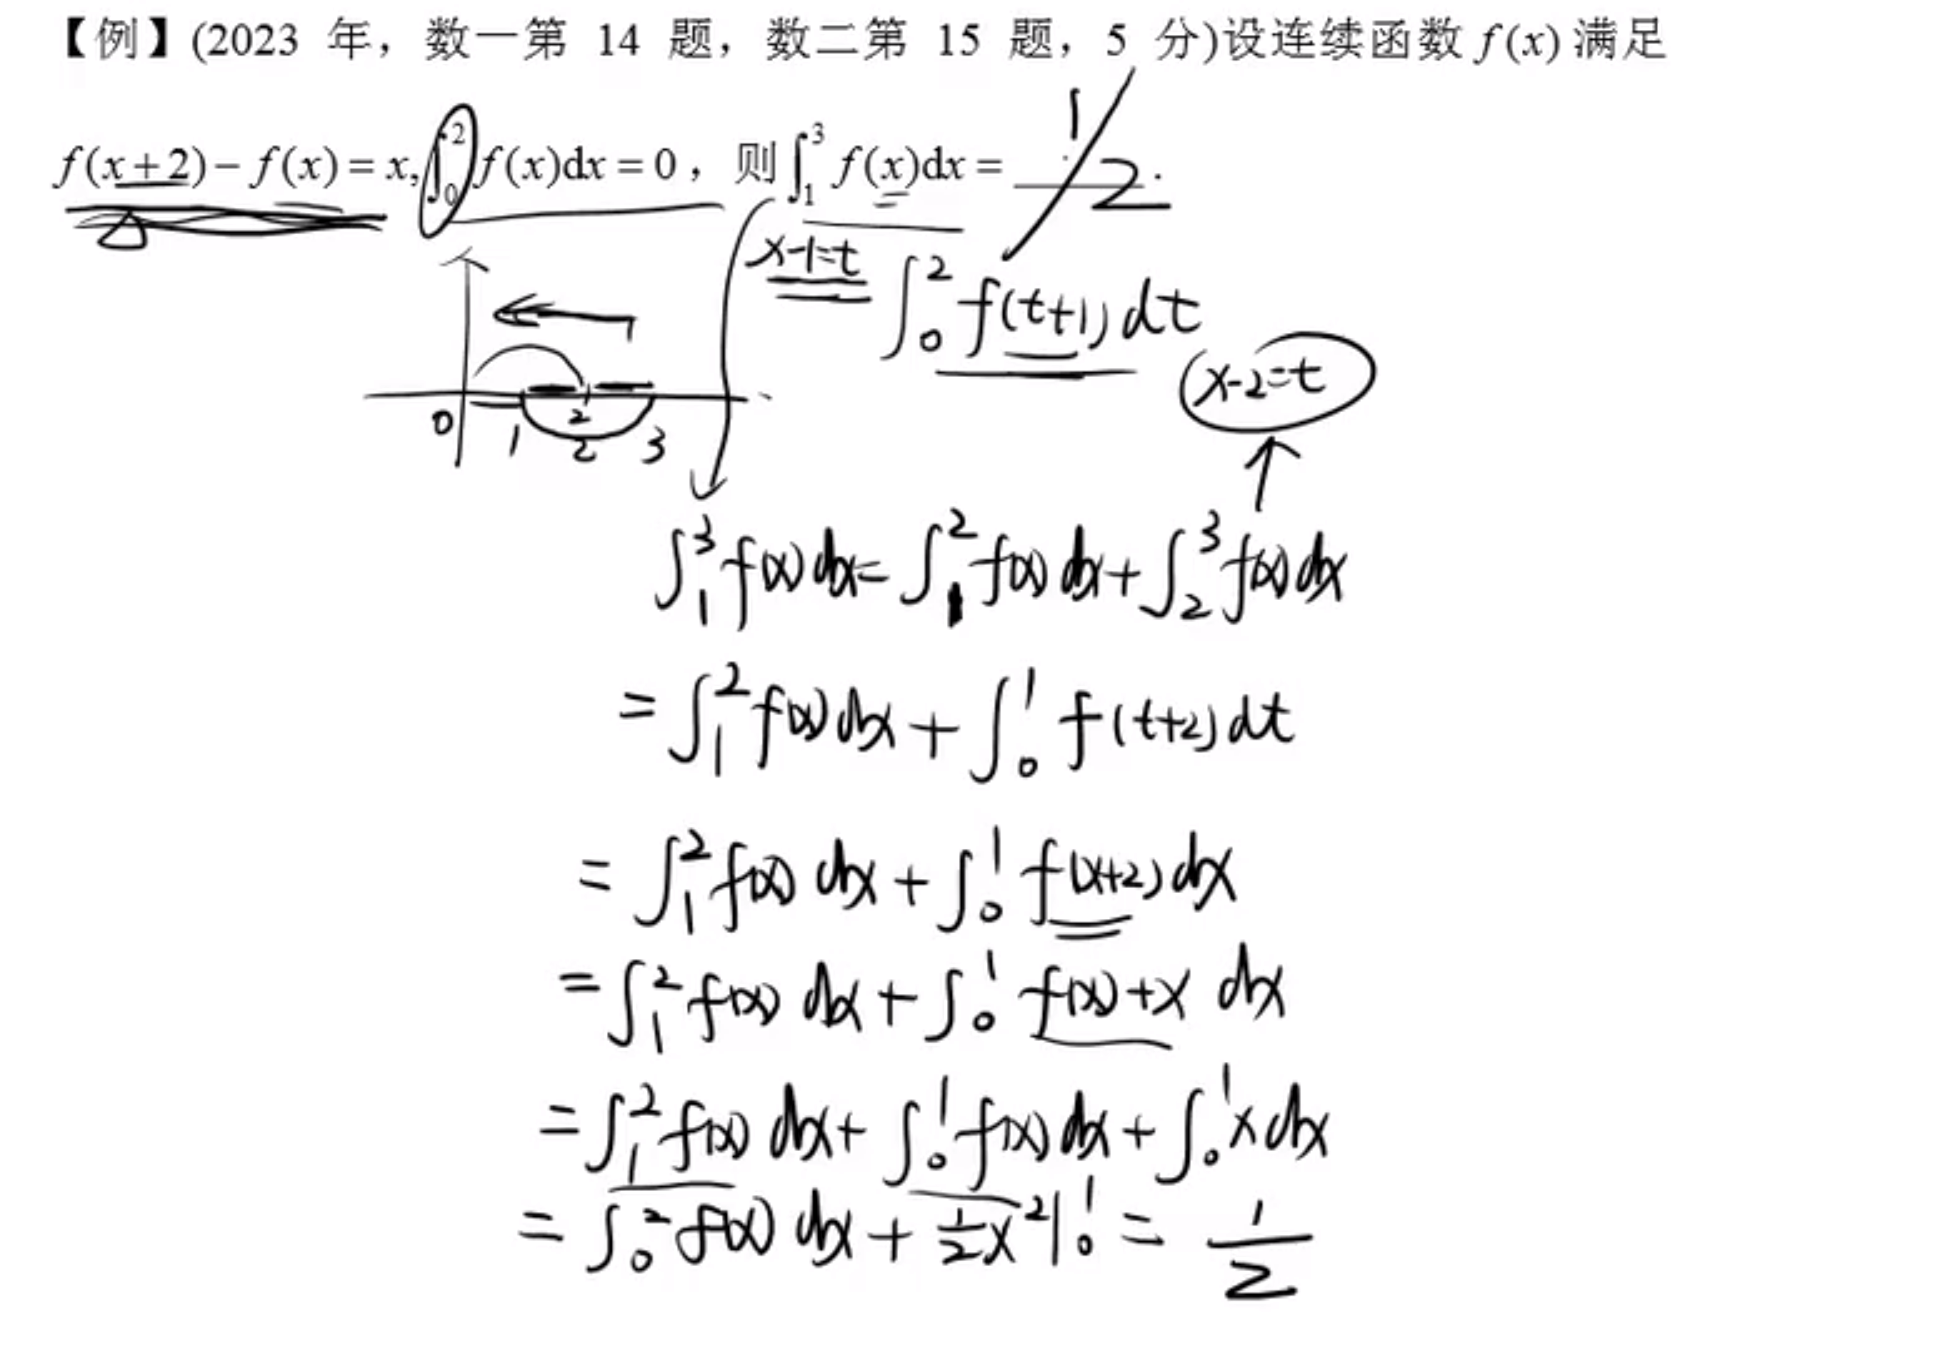 【例】(2023 年，数一第 14 题，数二第 15 题，5 分)设连续函数 f(x) 满足
f(x+2)−f(x)=x,∫₀² f(x)dx=0，则∫₁³ f(x)dx= 1/2 .
x-1=t ∫₀² f(t+1)dt
x-2=t
0 1 2 2 3
∫₁³ f(x)dx=∫₁² f(x)dx+∫₂³ f(x)dx
=∫₁² f(x)dx+∫₀¹ f(t+2)dt
=∫₁² f(x)dx+∫₀¹ f(x+2)dx
=∫₁² f(x)dx+∫₀¹ f(x)+x dx
=∫₁² f(x)dx+∫₀¹ f(x)dx+∫₀¹ xdx
=∫₀² f(x)dx+½x²|₀¹=1/2